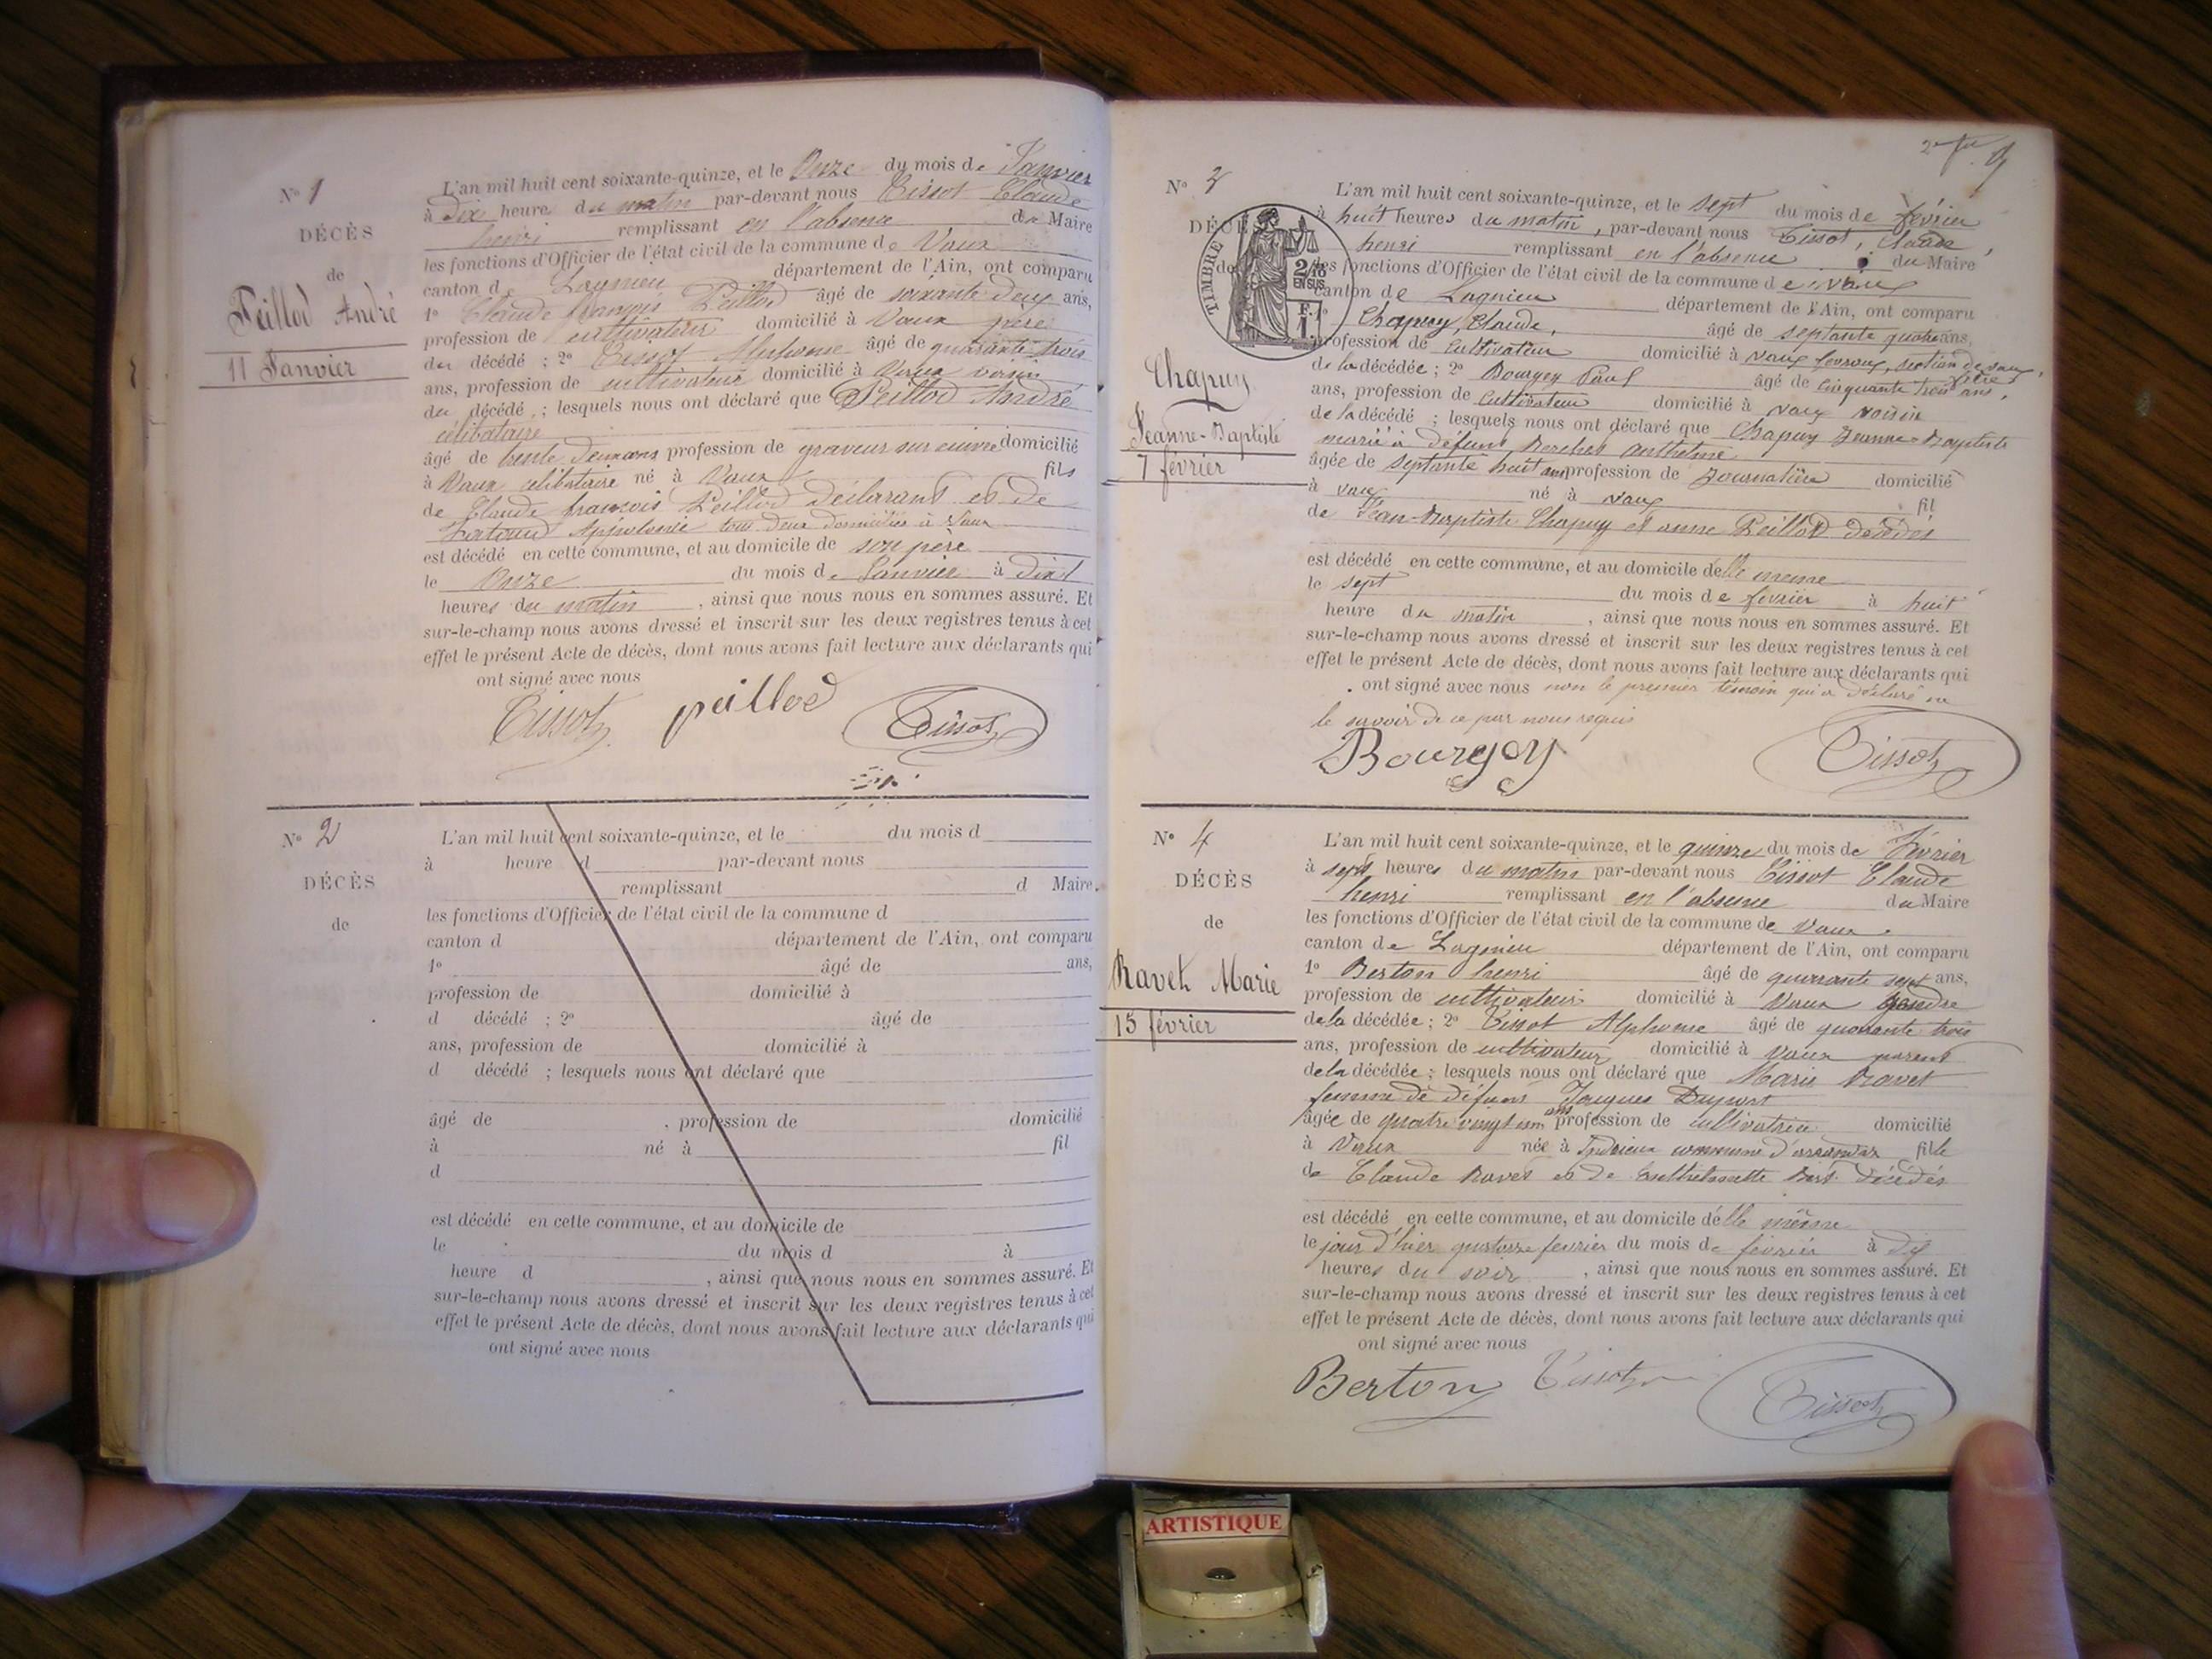 N° 1
DÉCÈS
de
Peillod André
11 Janvier
L'an mil huit cent soixante-quinze, et le Onze du mois de Janvier
à Dix heure du matin par-devant nous Tissot Claude
henri remplissant en l'absence du Maire
les fonctions d'Officier de l'état civil de la commune de Vaux
canton de Lagnieu département de l'Ain, ont comparu
1° Claude françois Peillod âgé de soixante deux ans,
profession de cultivateur domicilié à Vaux père
du décédé ; 2° Tissot Alphonse âgé de quarante trois
ans, profession de cultivateur domicilié à Vaux voisin
du décédé ; lesquels nous ont déclaré que Peillod André
célibataire
âgé de trente deux ans profession de graveur sur cuivre domicilié
à Vaux célibataire né à Vaux fils
de Claude françois Peillod déclarant et de
Appolonie tous deux domiciliés à Vaux
est décédé en cette commune, et au domicile de son père
le Onze du mois de Janvier à dix
heures du matin, ainsi que nous nous en sommes assuré. Et
sur-le-champ nous avons dressé et inscrit sur les deux registres tenus à cet
effet le présent Acte de décès, dont nous avons fait lecture aux déclarants qui
ont signé avec nous
Tissot peillod Tissot
N° 2
DÉCÈS
de
L'an mil huit cent soixante-quinze, et le du mois d
à heure d par-devant nous
remplissant d Maire
les fonctions d'Officier de l'état civil de la commune d
canton d département de l'Ain, ont comparu
1° âgé de ans,
profession de domicilié à
d décédé ; 2° âgé de
ans, profession de domicilié à
d décédé ; lesquels nous ont déclaré que
âgé de , profession de domicilié
à né à fil
d
est décédé en cette commune, et au domicile de
le du mois d à
heure d , ainsi que nous nous en sommes assuré. Et
sur-le-champ nous avons dressé et inscrit sur les deux registres tenus à cet
effet le présent Acte de décès, dont nous avons fait lecture aux déclarants qui
ont signé avec nous
N° 3
DÉCÈ
de
TIMBRE
2/10
EN SUS
F. 1
Chapuy
Jeanne-Baptiste
7 février
L'an mil huit cent soixante-quinze, et le sept du mois de février
à huit heures du matin, par-devant nous Tissot, Claude,
henri remplissant en l'absence du Maire
les fonctions d'Officier de l'état civil de la commune de Vaux
canton de Lagnieu département de l'Ain, ont comparu
1° Chapuy, Claude, âgé de septante quatre ans,
profession de Cultivateur domicilié à vaux fevroux, section de vaux, frère
de la décédée ; 2° Bourgey Paul âgé de cinquante trois ans,
ans, profession de Cultivateur domicilié à vaux voisin
de la décédé ; lesquels nous ont déclaré que Chapuy Jeanne-Baptiste
mariée à défunt Berchet anthelme
âgée de septante huit ans profession de Journalière domicilié
à vaux né à vaux fil
de Jean-Baptiste Chapuy et anne Peillod décédés
est décédé en cette commune, et au domicile d'elle même
le sept du mois de fevrier à huit
heure du matin, ainsi que nous nous en sommes assuré. Et
sur-le-champ nous avons dressé et inscrit sur les deux registres tenus à cet
effet le présent Acte de décès, dont nous avons fait lecture aux déclarants qui
ont signé avec nous non le premier témoin qui a déclaré ne
le savoir de ce par nous requis
Bourgey Tissot
N° 4
DÉCÈS
de
Ravet Marie
15 février
L'an mil huit cent soixante-quinze, et le quinze du mois de Février
à sept heures du matin par-devant nous Tissot Claude
henri remplissant en l'absence du Maire
les fonctions d'Officier de l'état civil de la commune de Vaux
canton de Lagnieu département de l'Ain, ont comparu
1° Berton henri âgé de quarante sept ans,
profession de cultivateur domicilié à Vaux gendre
de la décédée ; 2° Tissot Alphonse âgé de quarante trois
ans, profession de cultivateur domicilié à Vaux parent
de la décédée ; lesquels nous ont déclaré que Marie Ravet
femme de défunt Jacques Dupont
âgée de quatre vingt un ans profession de cultivatrice domicilié
à Vaux née à Indrieux commune d'arandas fille
de Claude Ravet et de décédés
est décédé en cette commune, et au domicile d'elle même
le jour d'hier quatorze fevrier du mois de février à dix
heures du soir, ainsi que nous nous en sommes assuré. Et
sur-le-champ nous avons dressé et inscrit sur les deux registres tenus à cet
effet le présent Acte de décès, dont nous avons fait lecture aux déclarants qui
ont signé avec nous
Berton Tissot Tissot
ARTISTIQUE